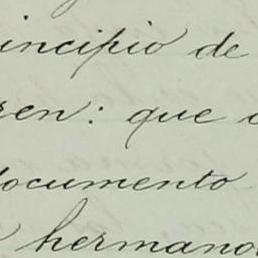 incipio de
ren: que
documento
hermano